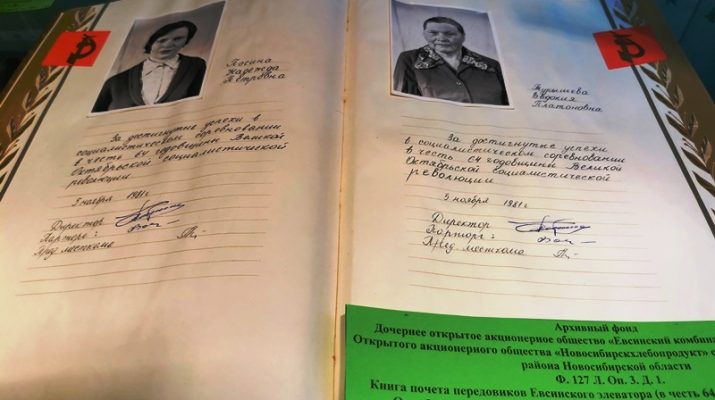 Посина
Надежда
Петровна
За достигнутые успехи в
социалистическом соревновании
в честь 64 годовщины Великой
Октябрьской социалистической
революции.
5 ноября 1981г
Директор
Парторг:
Пред. месткома
Курышева
Евдокия
Платоновна
За достигнутые успехи
в социалистическом соревновании
в честь 64 годовщины Великой
Октябрьской социалистической
революции
5 ноября 1981г
Директор
Парторг:
Пред. месткома
Архивный фонд
Дочернее открытое акционерное общество «Евсинский комбина
Открытого акционерного общества «Новосибирскхлебопродукт» с
района Новосибирской области
Ф. 127 Л. Оп. 3. Д. 1.
Книга почета передовиков Евсинского элеватора (в честь 64